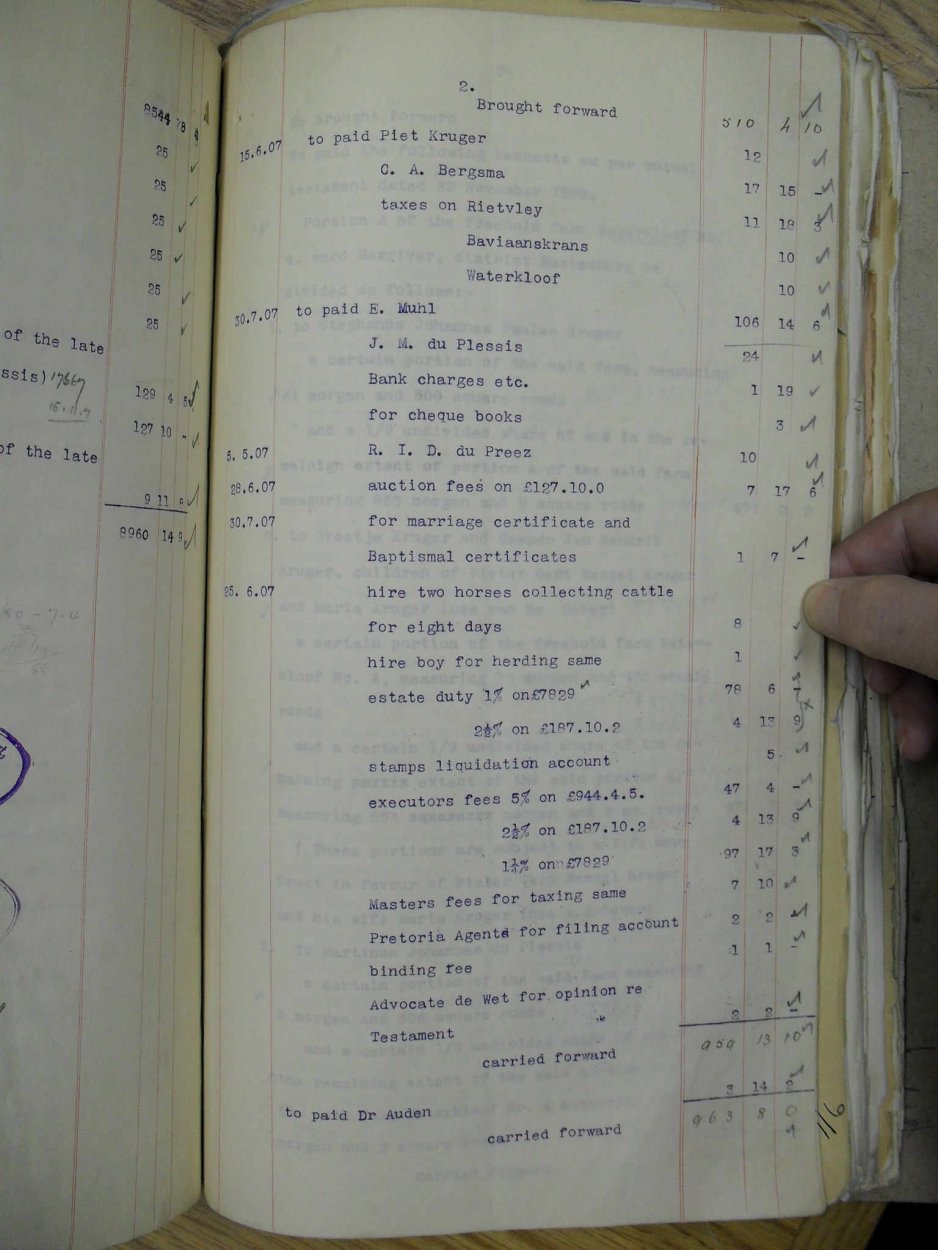 8544
25
25
25
25
25
25
of the late
ssis) 17667
129 4
127 10 -
of the late
9 11
8960 14 9
2.
Brought forward 510 4 10
15.6.07 to paid Piet Kruger 12
C. A. Bergsma 17 15 -
taxes on Rietvley 11 18 3
Baviaanskrans 10
Waterkloof 10
30.7.07 to paid E. Muhl 106 14 6
J. M. du Plessis 24
Bank charges etc. 1 19
for cheque books 3
5. 5.07 R. I. D. du Preez 10
28.6.07 auction fees on £127.10.0 7 17 6
30.7.07 for marriage certificate and
Baptismal certificates 1 7 -
25. 6.07 hire two horses collecting cattle
for eight days 8
hire boy for herding same 1
estate duty 1% on£7829 78 6 -
2½% on £187.10.2 4 13 9
stamps liquidation account 5
executors fees 5% on £944.4.5. 47 4 -
2½% on £187.10.2 4 13 9
1¼% on £7829 97 17 3
Masters fees for taxing same 7 10
Pretoria Agents for filing account 2 2
binding fee 1 1 -
Advocate de Wet for opinion re
Testament 2 2 -
carried forward 959 13 10
to paid Dr Auden 3 14 2
carried forward 963 8 0
116